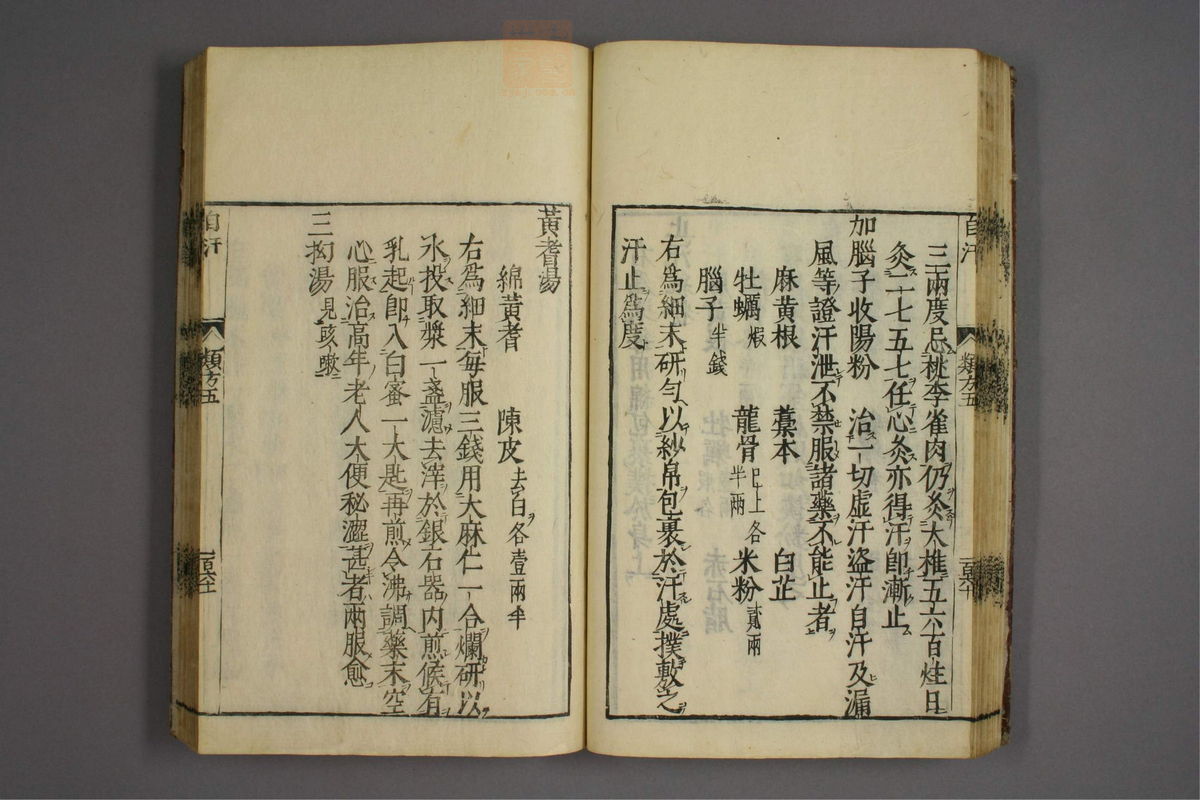 自汗 類方五 一百六十
三兩度忌桃李雀肉仍灸大椎五六百炷日
灸二七五七任心灸亦得汗卽漸止
加腦子收陽粉 治一切虛汗盜汗自汗及漏
風等證汗泄不禁服諸藥不能止者
麻黄根 藁本 白芷
牡蠣煆 龍骨已上各半兩 米粉貳兩
腦子半錢
右爲細末研勻以紗帛包裹於汗處撲敷之
汗止爲度
黃耆湯
綿黄耆 陳皮去白各壹兩半
右爲細末每服三錢用大麻仁一合爛研以
水投取漿一盞濾去滓於銀石器內煎候有
乳起卽入白蜜一大匙再煎令沸調藥末空
心服治高年老人大便秘澀甚者兩服愈
三拗湯見咳嗽
自汗 類方五